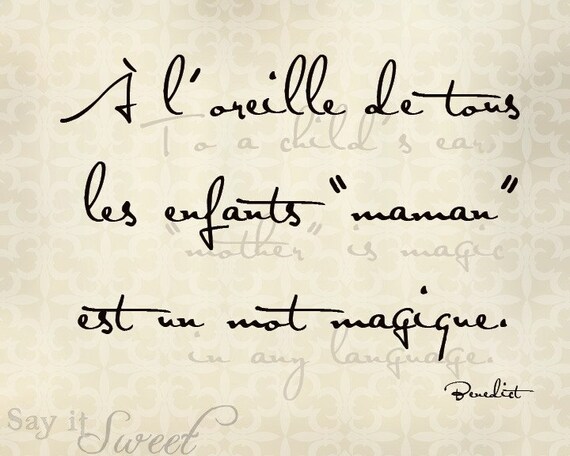 À l'oreille de tous
To a child's ear,
les enfants "maman"
"mother" is magic
est un mot magique.
in any language.
Benedict
Say it Sweet